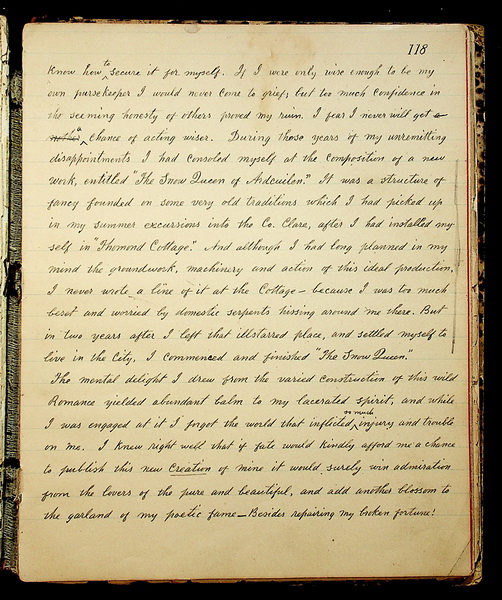 118
Know how to secure it for myself. If I were only wise enough to be my
own pursekeeper I would never come to grief; but too much confidence in
the seeming honesty of others proved my ruin. I fear I never will get a
chance of acting wiser. During those years of my unremitting
disappointments I had consoled myself at the composition of a new
work, entitled "The Snow Queen of Ardcuilen." It was a structure of
fancy founded on some very old traditions which I had picked up
in my summer excursions into the Co. Clare, after I had installed my-
self in "Thomond Cottage." And although I had long planned in my
mind the groundwork, machinery and action of this ideal production,
I never wrote a line of it at the Cottage – because I was too much
beset and worried by domestic serpents hissing around me there. But
in two years after I left that illstarred place, and settled myself to
live in the City, I commenced and finished "The Snow Queen."
The mental delight I drew from the varied construction of this wild
Romance yielded abundant balm to my lacerated spirit, and while
I was engaged at it I forgot the world that inflicted so much injury and trouble
on me. I knew right well that if fate would kindly afford me a chance
to publish this new Creation of mine it would surely win admiration
from the lovers of the pure and beautiful, and add another blossom to
the garland of my poetic fame – Besides repairing my broken fortune!